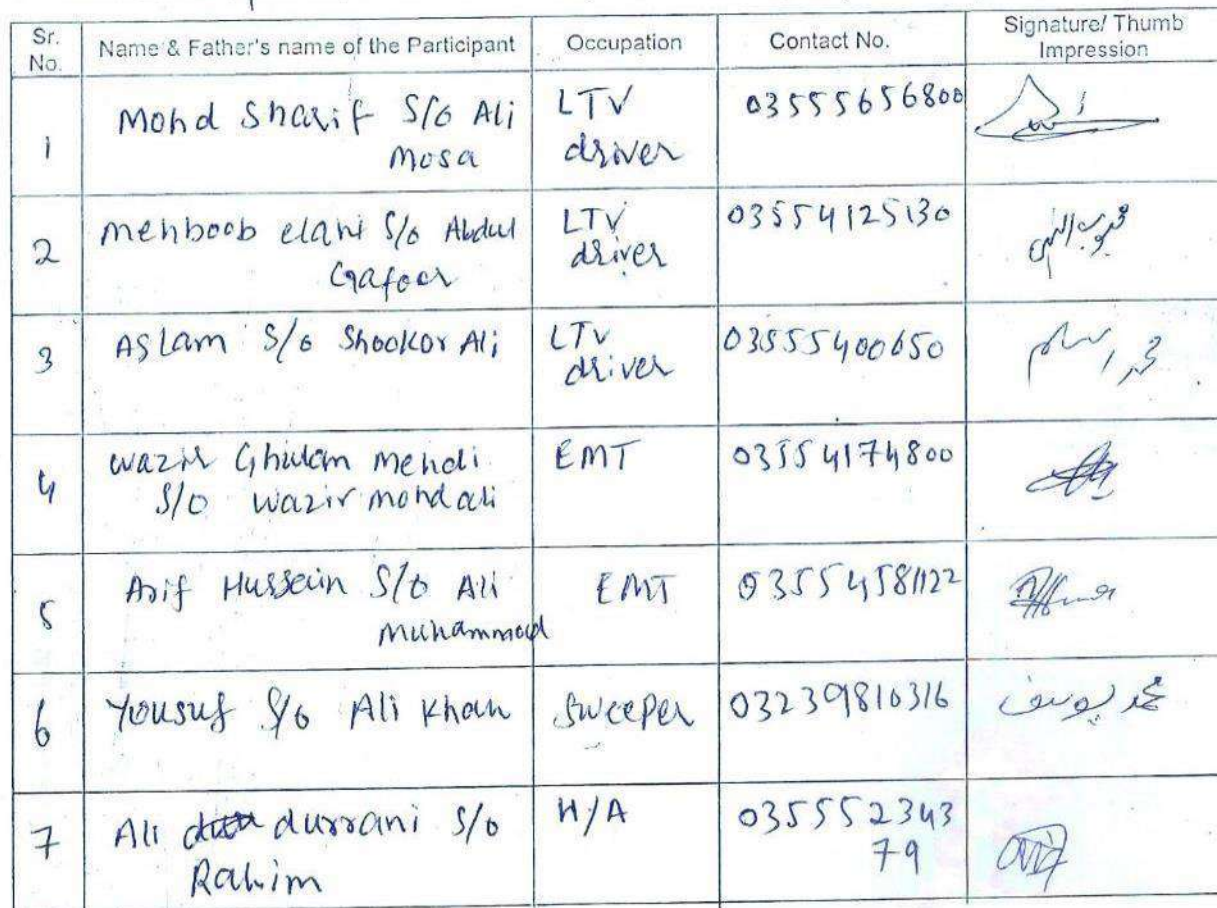 Sr. No. Name & Father's name of the Participant Occupation Contact No. Signature/ Thumb Impression
1 Mohd Sharif S/o Ali Mosa LTV driver 03555656800
2 Mehboob elahi S/o Abdul Gafoor LTV driver 03554125130 محبوب الہی
3 Aslam S/o Shookor Ali LTV driver 03555400650 محمد اسلم
4 Wazir Ghulam Mehdi S/o Wazir Mohd ali EMT 03554174800
5 Arif Hussain S/o Ali Muhammad EMT 03554581122
6 Yousuf S/o Ali Khan Sweeper 03239810316 محمد یوسف
7 Ali durrani S/o Rahim H/A 03555234379